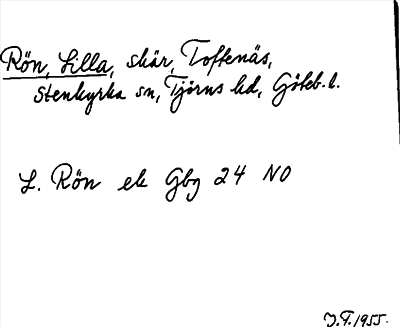 Rön, Lilla, skär, Toftenäs,
Stenkyrka sn, Tjörns hd, Göteb. l.
L. Rön ek Gbg 24 NO
J.F. 1955.